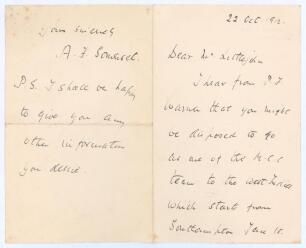 22 Oct 1912.
Dear Mr Lyttelton
I hear from P.F.
Warner that you might
be disposed to go
as one of the M.C.C.
team to the West Indies
which start from
Southampton Jan 18.
yours sincerely
A. F. Somerset.
P.S. I shall be happy
to give you any
other information
you desire.